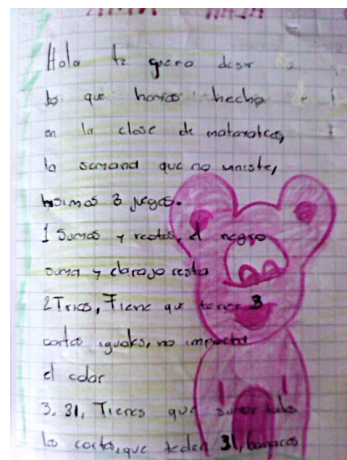 Hola te quero desir
lo que hamos hecho
en la clase de matamatica,
la semana que no veniste,
hisimos 3 juegos.
1 Sumas y restas, el negro
suma y el rojo resta
2 Trios, Tiene que tener 3
cartas iguales, no importa
el color
3. 31, Tienes que sumar todas
las cartas, que te den 31,